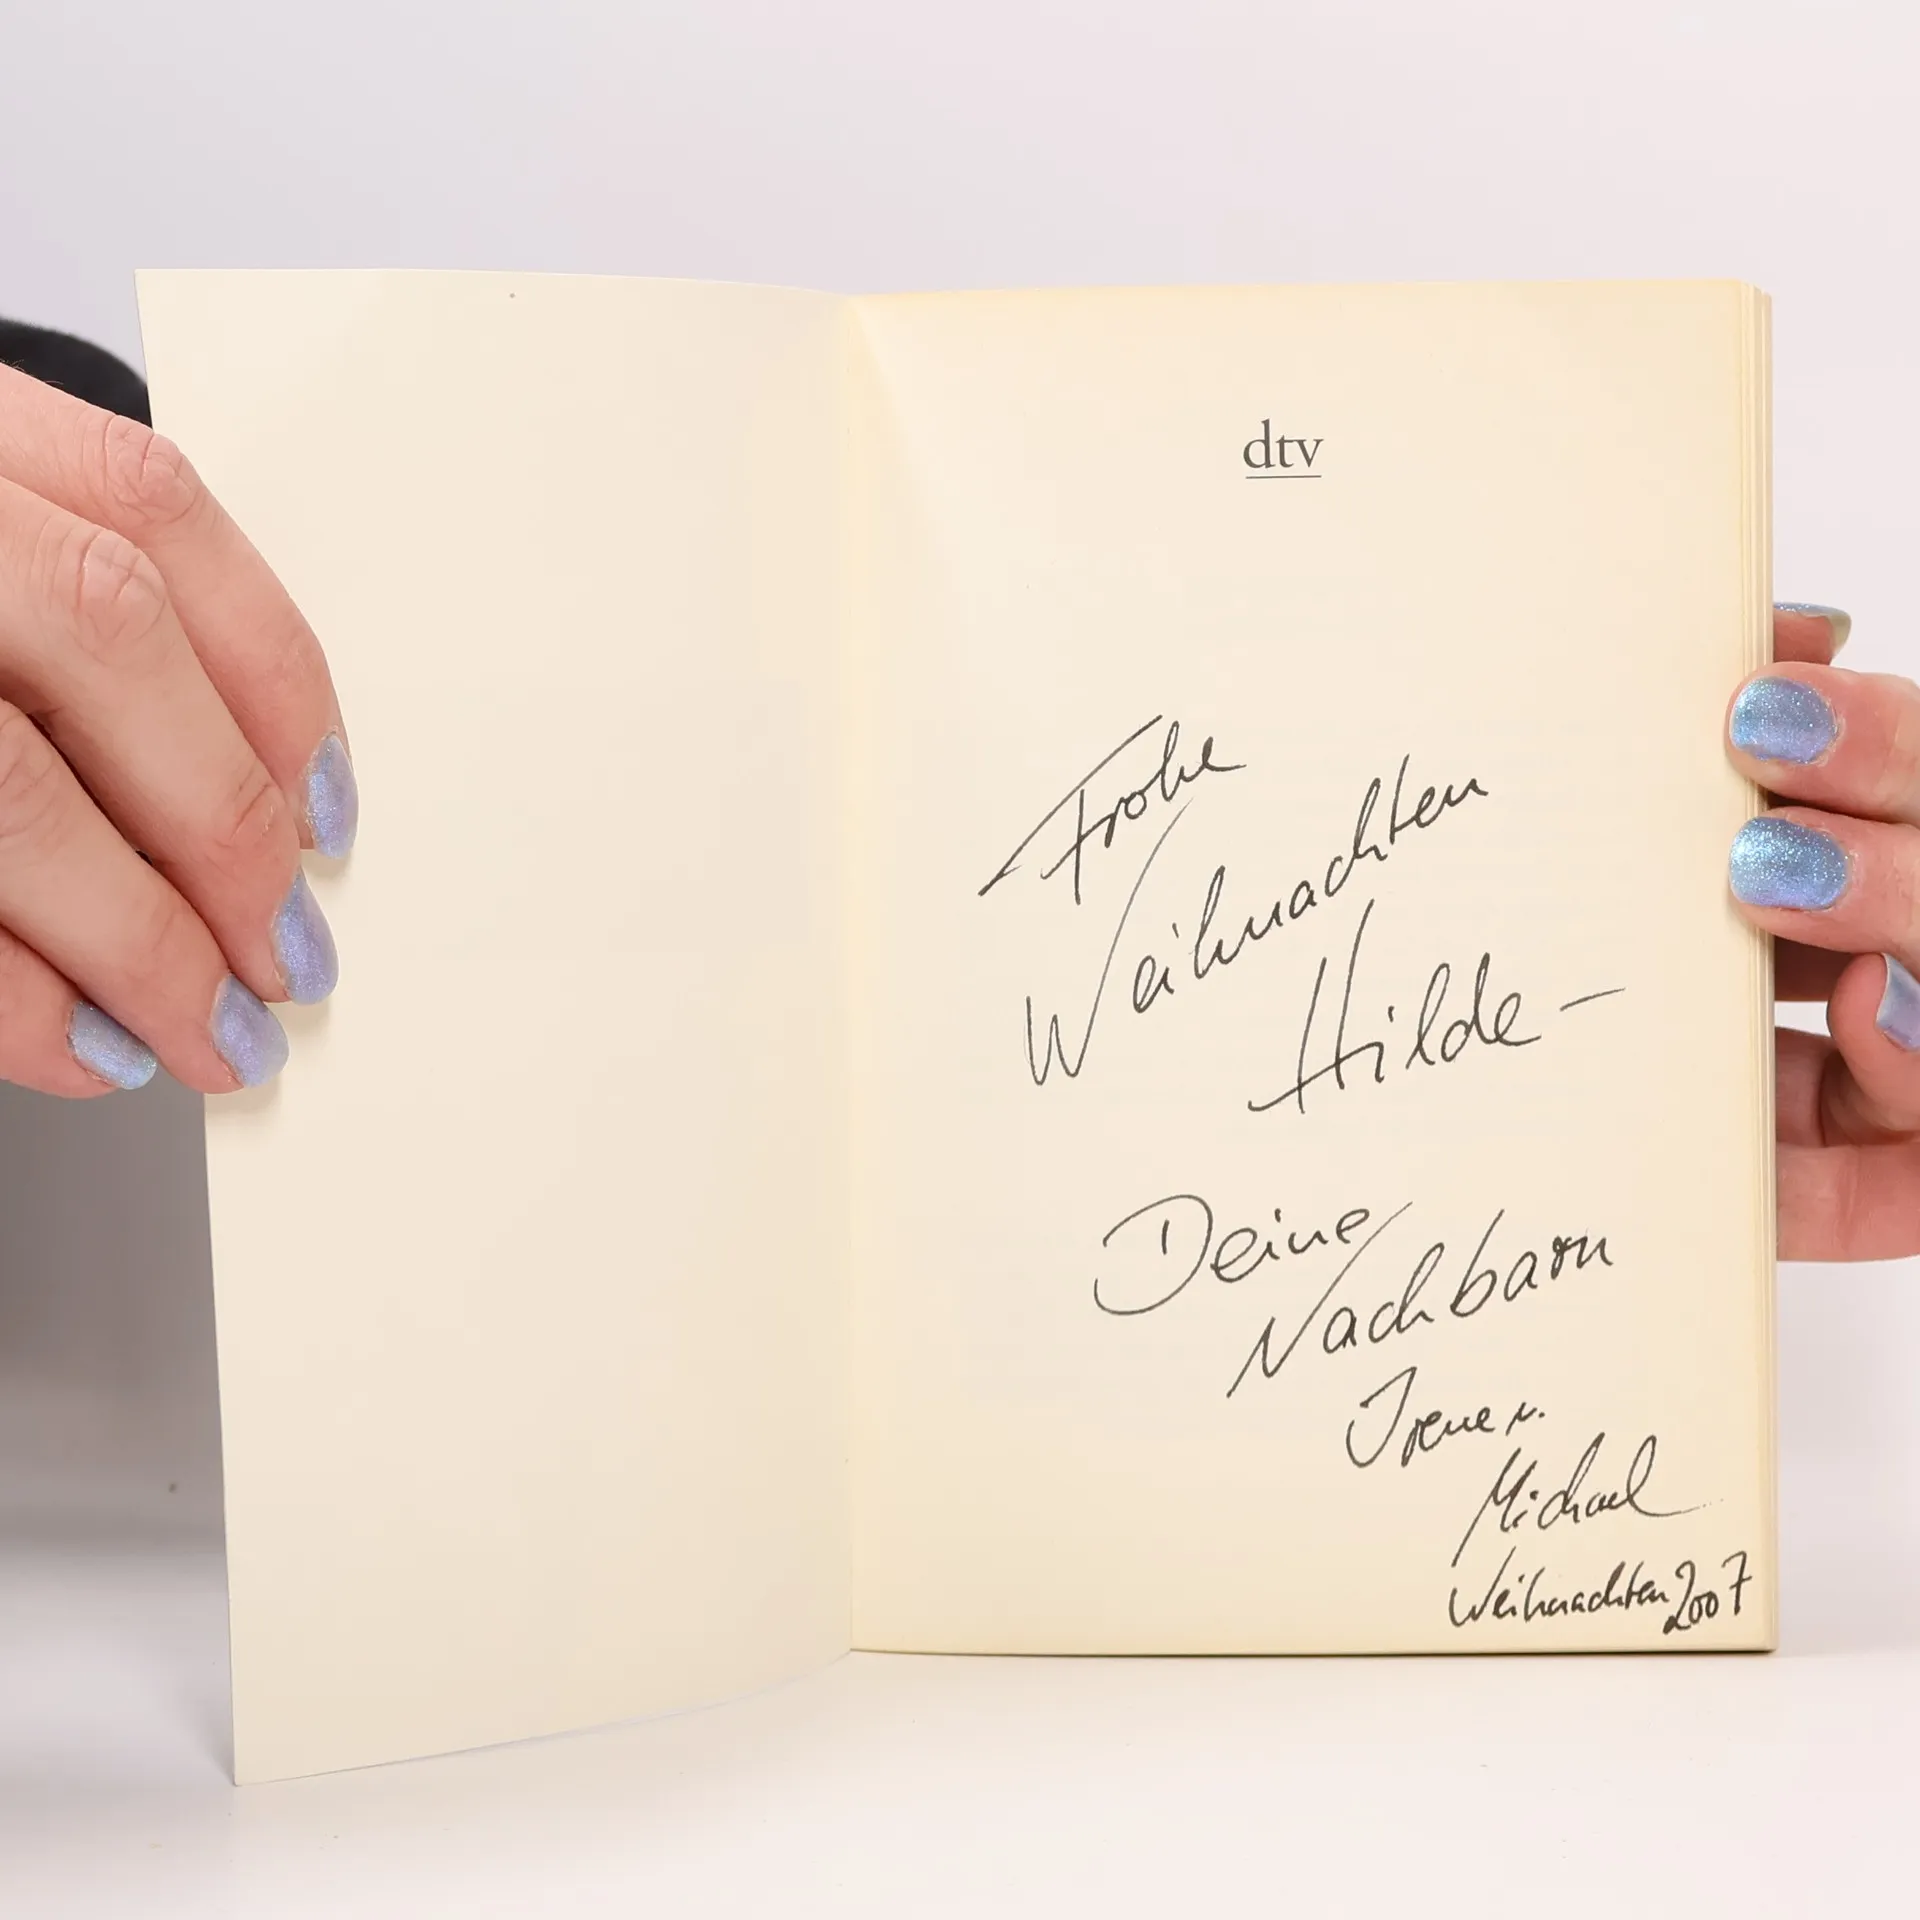 dtv
Frohe
Weihnachten
Hilde –
Deine
Nachbarn
Irene u.
Michael
Weihnachten 2007